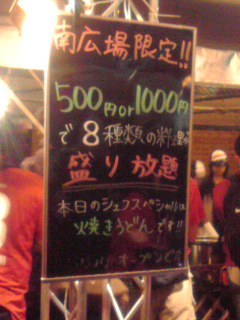 南広場限定!!
500円or1000円
で8種類の料理が
盛り放題
本日のシェフスペシャルは
火焼きうどんです!!
オープン